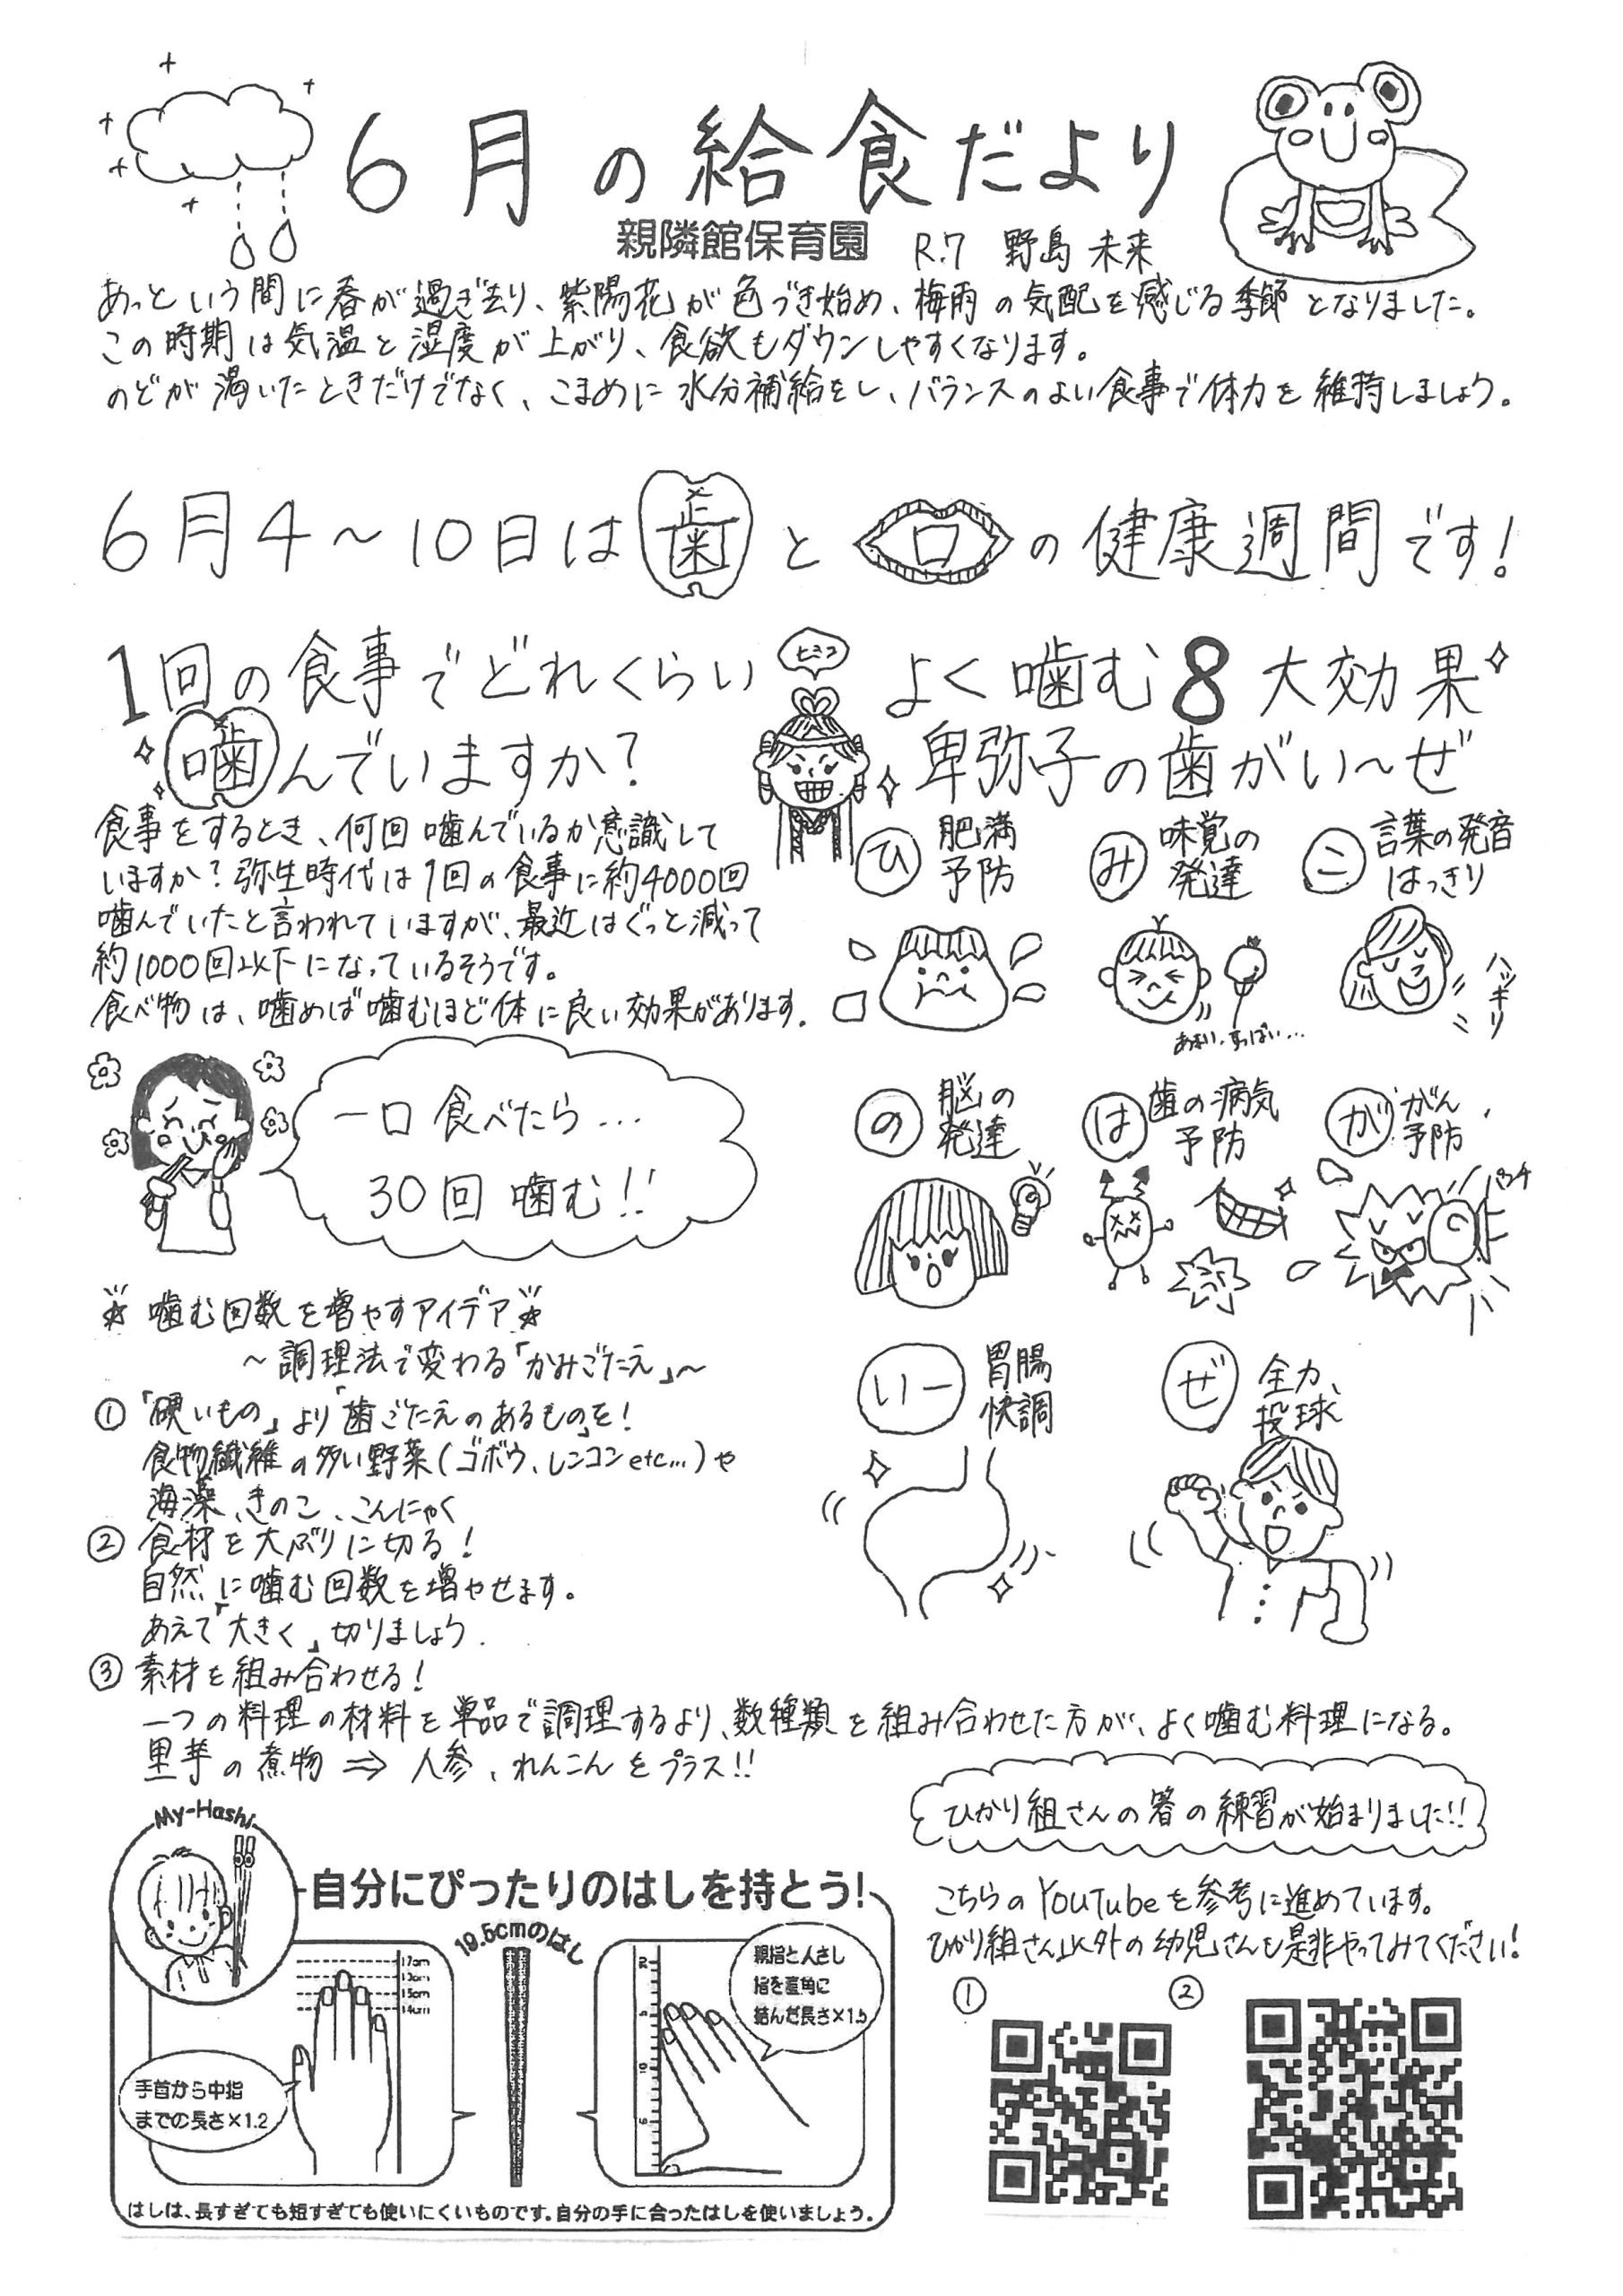 6月の給食だより
親隣館保育園 R.7 野島 未来
あっという間に春が過ぎ去り、紫陽花が色づき始め、梅雨の気配を感じる季節となりました。
この時期は気温と湿度が上がり、食欲もダウンしやすくなります。
のどが渇いたときだけでなく、こまめに水分補給をし、バランスのよい食事で体力を維持しましょう。
6月4〜10日は歯と口の健康週間です!
1回の食事でどれくらい
噛んでいますか?
食事をするとき、何回噛んでいるか意識して
いますか?弥生時代は1回の食事に約4000回
噛んでいたと言われていますが、最近はぐっと減って
約1000回以下になっているそうです。
食べ物は、噛めば噛むほど体に良い効果があります。
一口食べたら...
30回噛む!!
ヒミコ
よく噛む8大効果
卑弥子の歯がい〜ぜ
ひ 肥満
予防
み 味覚の
発達
こ 言葉の発音
はっきり
あまい、すっぱい...
ハッキリ
の 脳の
発達
は 歯の病気
予防
が がん
予防
パンチ
いー 胃腸
快調
ぜ 全力
投球
☆噛む回数を増やすアイデア☆
〜調理法で変わる「かみごたえ」〜
① 「硬いもの」より「歯ごたえのあるもの」を!
食物繊維の多い野菜(ゴボウ、レンコンetc...)や
海藻、きのこ、こんにゃく
② 食材を大ぶりに切る!
自然に噛む回数を増やせます。
あえて「大きく」切りましょう.
③ 素材を組み合わせる!
一つの料理の材料を単品で調理するより、数種類を組み合わせた方が、よく噛む料理になる。
里芋の煮物 ⇒ 人参、れんこんをプラス!!
My-Hashi
自分にぴったりのはしを持とう!
19.5cmのはし
17cm
15cm
14cm
手首から中指
までの長さ×1.2
親指と人さし
指を直角に
結んだ長さ×1.5
はしは、長すぎても短すぎても使いにくいものです。自分の手に合ったはしを使いましょう。
ひかり組さんの箸の練習が始まりました!!
こちらのYouTubeを参考に進めています。
ひかり組さん以外の幼児さんも是非やってみてください!
① ②